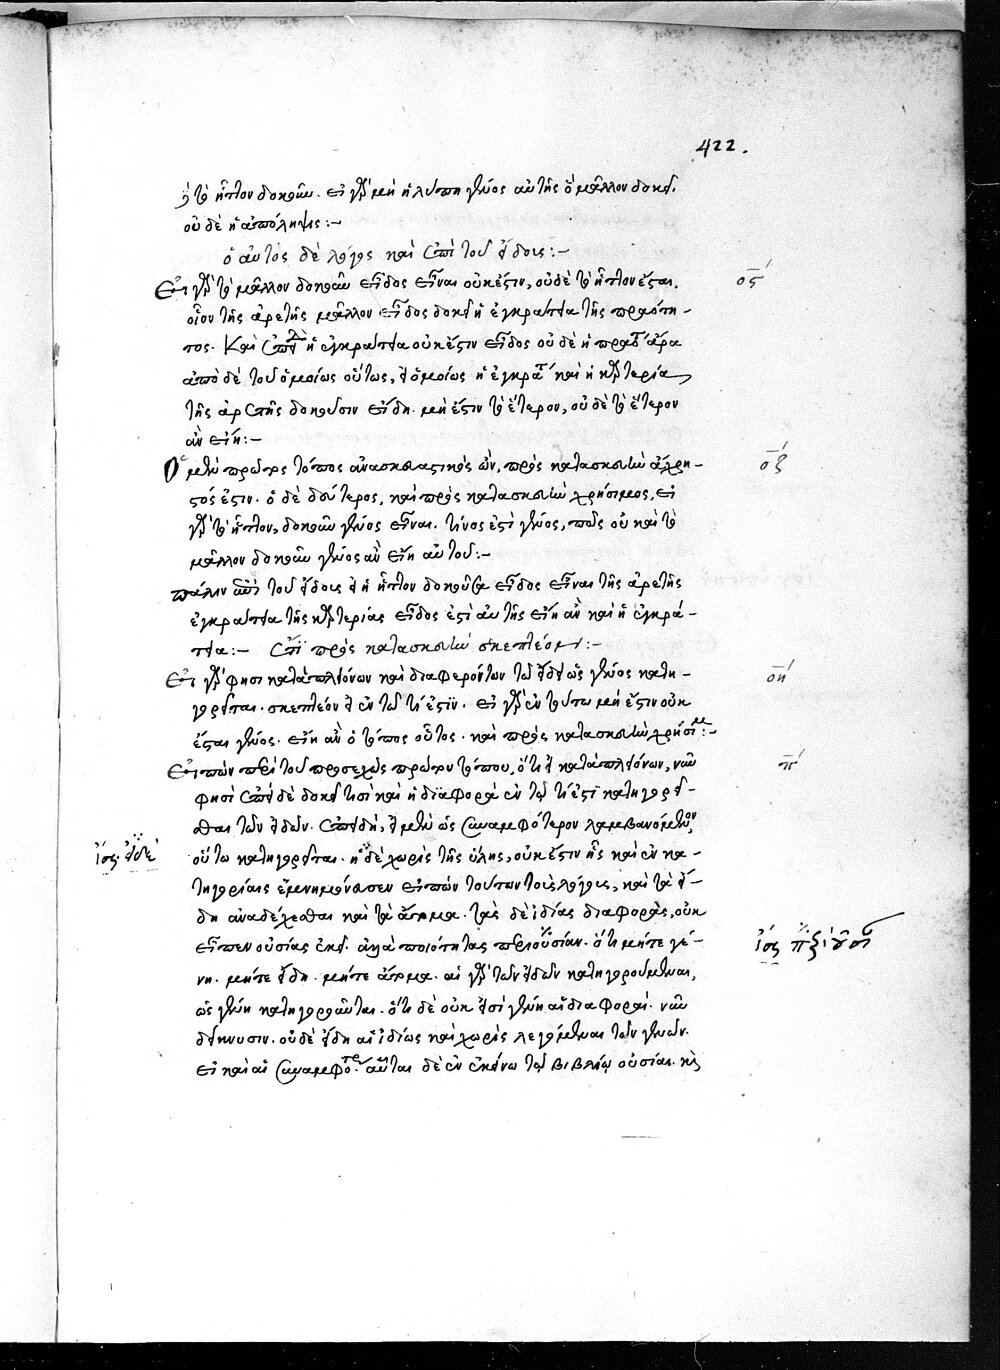 422.
ἢ τὸ ἧττον δοκοῦν. εἰ γὰρ μὴ ἡ λύπη γένος αὐτῆς ὃ μᾶλλον δοκεῖ,
οὐδὲ ἡ ὑπόληψις :~
ὁ αὐτὸς δὲ λόγος καὶ ἐπὶ τοῦ εἴδους :~
Εἰ γὰρ τὸ μᾶλλον δοκοῦν εἶδος εἶναι οὐκ ἔστιν, οὐδὲ τὸ ἧττον ἔσται. ος΄
οἷον τῆς ἀρετῆς μᾶλλον εἶδος δοκεῖ ἡ ἐγκράτεια τῆς πραότη-
τος. Καὶ ἐπεὶ ἡ ἐγκράτεια οὐκ ἔστιν εἶδος οὐδὲ ἡ πραότης ἄρα
ἀπὸ δὲ τοῦ ὁμοίως οὕτως, εἰ ὁμοίως ἡ ἐγκράτεια καὶ ἡ καρτερία
τῆς ἀρετῆς δοκοῦσιν εἴδη. μή ἐστιν τὸ ἕτερον, οὐδὲ τὸ ἕτερον
ἂν εἴη :~
Ὁ μὲν πρῶτος τόπος ἀνασκευαστικὸς ὢν, πρὸς κατασκευὴν ἄχρη- οζ΄
στός ἐστιν. ὁ δὲ δεύτερος, καὶ πρὸς κατασκευὴν χρήσιμος, εἰ
γὰρ τὸ ἧττον, δοκοῦν γένος εἶναι. τινός ἐστι γένος, πῶς οὐ καὶ τὸ
μᾶλλον δοκοῦν γένος ἂν εἴη αὐτοῦ :~
πάλιν ἀπὸ τοῦ εἴδους εἰ ἡ ἧττον δοκοῦσα εἶδος εἶναι τῆς ἀρετῆς
ἐγκράτεια τῆς καρτερίας εἶδος ἐστὶ αὐτῆς εἴη ἂν καὶ ἡ ἐγκρά-
τεια :~ ἔτι πρὸς κατασκευὴν σκεπτέον :~
Εἰ γὰρ φησι κατὰ πλειόνων καὶ διαφερόντων τῷ εἴδει ὡς γένος κατη- οη΄
γορεῖται. σκεπτέον εἰ ἐν τῷ τί ἐστιν. εἰ γὰρ ἐν τούτῳ μή ἐστιν οὐκ
ἔσται γένος. εἴη ἂν ὁ τόπος οὗτος. καὶ πρὸς κατασκευὴν χρήσιμος :~
Εἰπὼν περὶ τοῦ προσεχῶς πρώτου τόπου, ὅτι εἰ κατὰ πλειόνων, νῦν π΄
φησὶ ἐπεὶ δὲ δοκεῖ τισὶ καὶ ἡ διαφορὰ ἐν τῷ τί ἐστι κατηγορεῖ-
σθαι τῶν εἰδῶν. ἐπειδὴ, εἰ μὲν ὡς συναμφότερον λαμβανομένων
ἴσ. εἰ δὲ οὕτω κατηγορεῖται. ἡ δὲ χωρὶς τῆς ὕλης, οὐκ ἔστιν ἧς καὶ ἐν κα-
τηγορίαις ἐμνημόνευσεν εἰπὼν τούτων τοὺς λόγους, καὶ τὰ εἴ-
δη ἀναδέχεσθαι καὶ τὰ ἄτομα. τὰς δὲ ἰδίας διαφορὰς, οὐκ
εἶπεν οὐσίας ἐκεῖ. ἀλλὰ ποιότητας περὶ οὐσίαν. ὅτι μήτε γέ-
νη. μήτε εἴδη. μήτε ἄτομα. αἱ γὰρ τῶν εἰδῶν κατηγορούμεναι,
ὡς γένη κατηγοροῦνται. ὅτι δὲ οὐκ εἰσὶ γένη αἱ διαφοραί. νῦν
δείκνυσιν. οὐδὲ εἴδη αἱ ἰδίως καὶ χωρὶς λεγόμεναι τῶν γενῶν.
εἰ καὶ αἱ συναμφότεραι. αὗται δὲ ἐν ἐκείνῳ τῷ βιβλίῳ οὐσίαι. καὶ